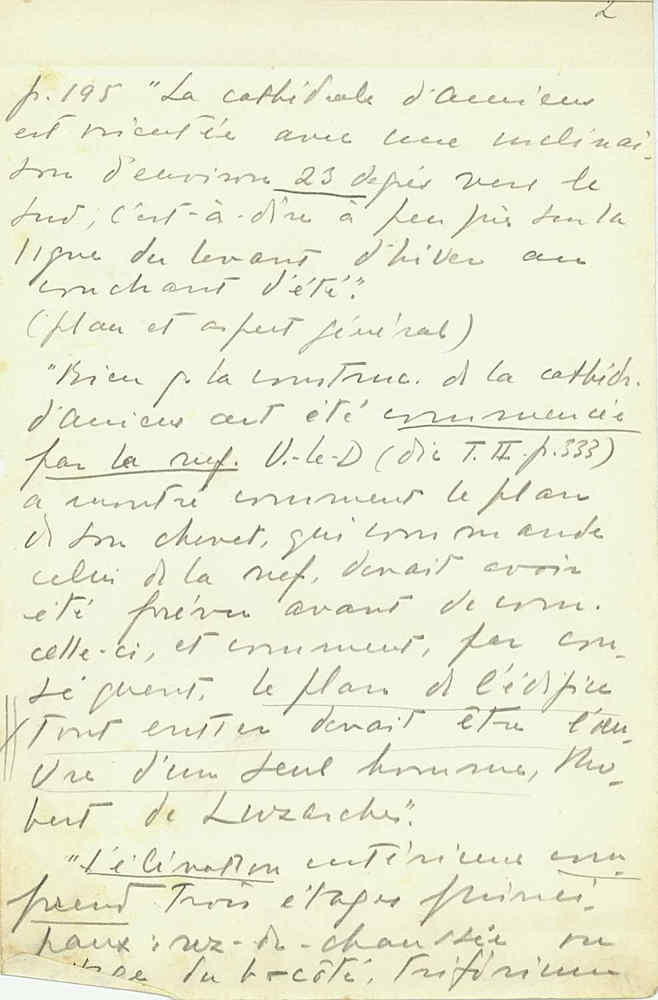 2
p. 195 "La cathédrale d'Amiens
est orientée avec une inclinai-
son d'environ 23 degrés vers le
sud, c'est-à-dire à peu près sur la
ligne du levant d'hiver au
couchant d'été".
(plan et aspect général)
"Bien q. la construc. de la cathédr.
d'Amiens ait été commencée
par la nef. V.-le-D (dic T. II. p. 333)
a montré comment le plan
de son chevet, qui commande
celui de la nef, devait avoir
été prévu avant de com.
celle-ci, et comment, par con-
séquent, le plan de l'édifice
tout entier devait être l'œu-
vre d'un seul homme, Ro-
bert de Luzarches".
"L'élévation intérieure com-
prend trois étages princi-
paux : rez-de-chaussée ou
du b-côté, triforium